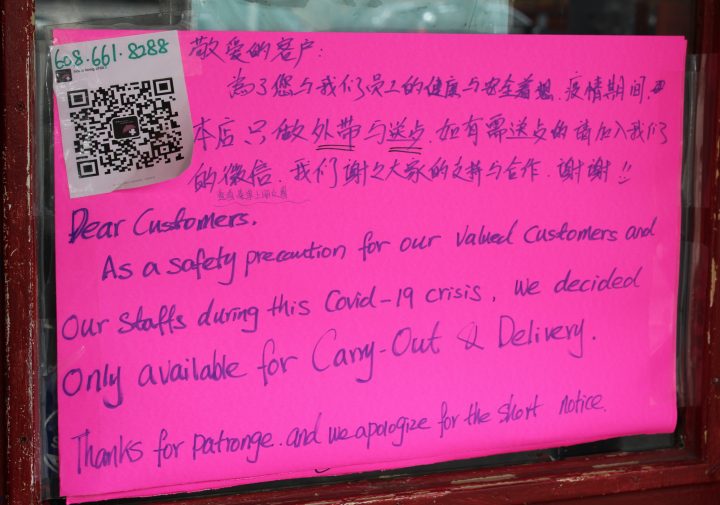 608·661·8288
敬爱的客户:
為了您与我们员工的健康与安全着想.疫情期间,
本店只做外带与送点.如有需送点的请加入我们
的微信.我们谢之大家的支持与合作.谢谢!!
Dear Customers.
As a safety precaution for our valued customers and
Our staffs during this Covid-19 crisis, we decided
Only available for Carry-Out & Delivery.
Thanks for patronge. and we apologize for the short notice.